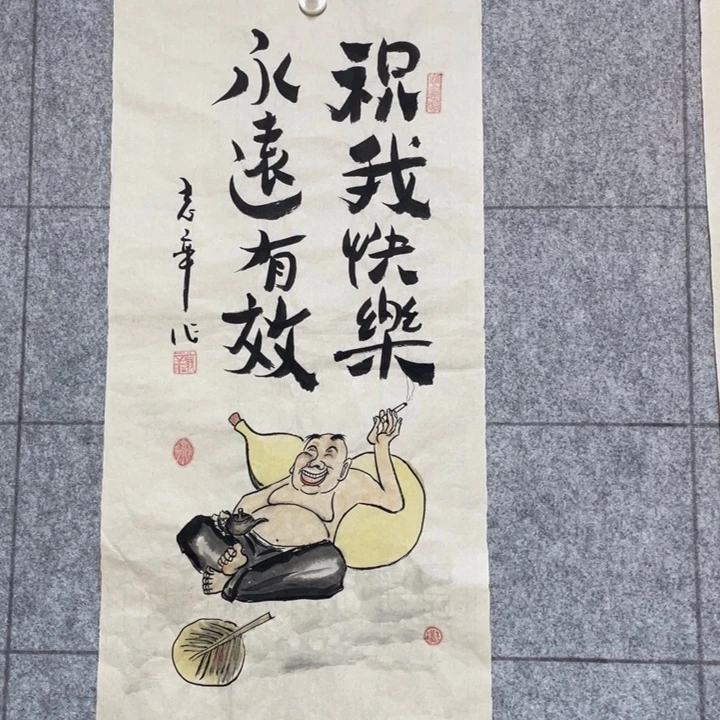 祝我快樂
永遠有效
志華作